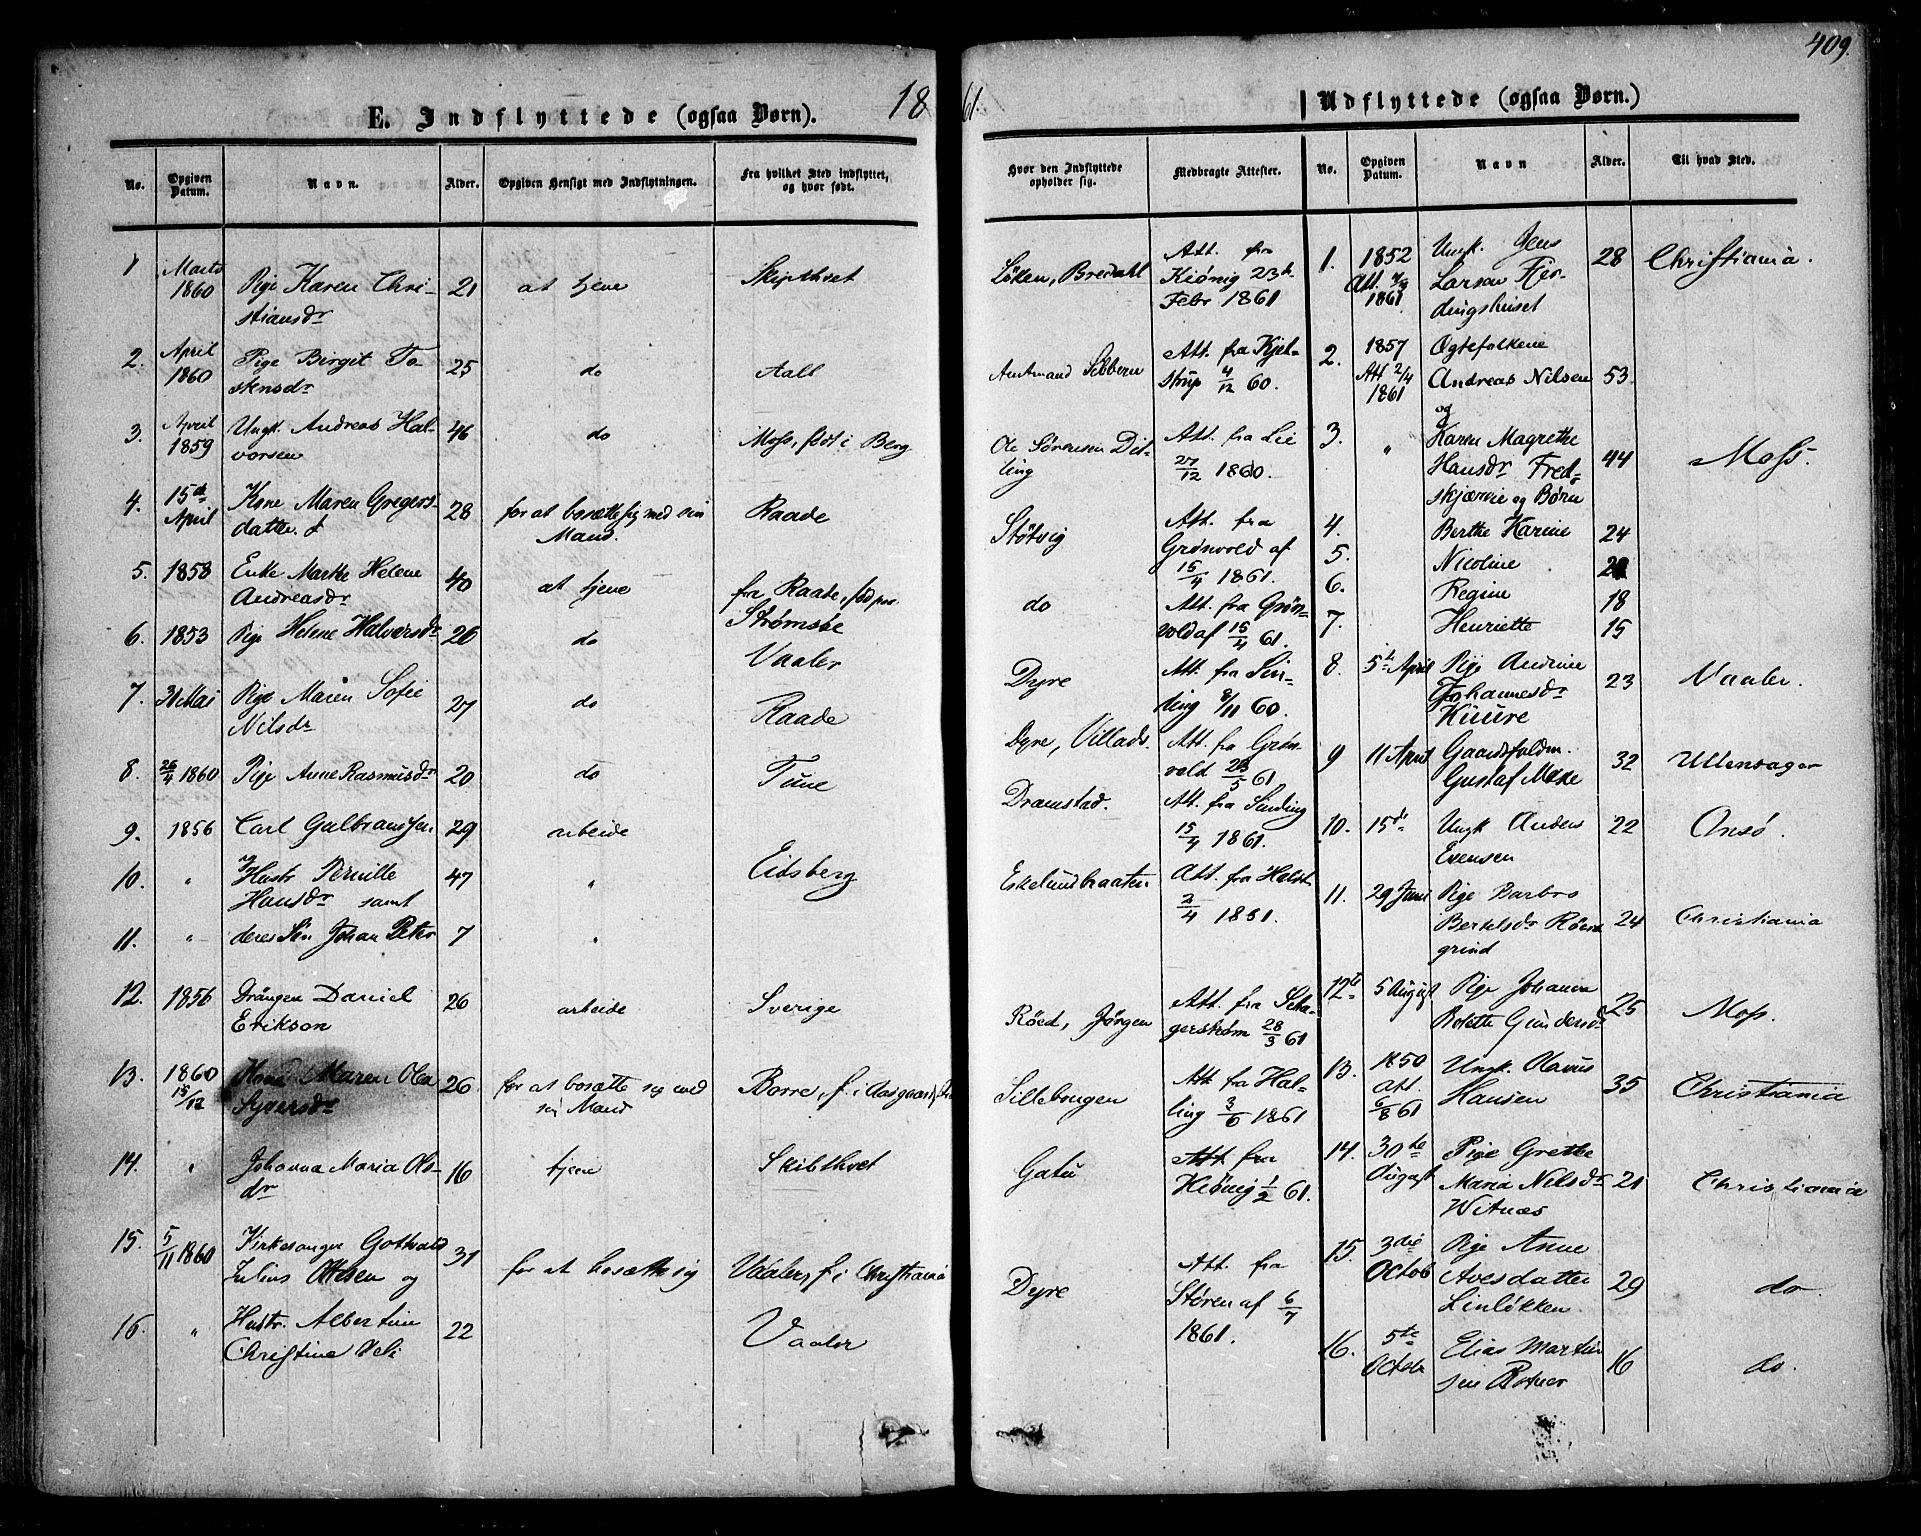 409.
18 61.
E. Indflyttede (ogsaa Børn).
Udflyttede (ogsaa Børn.)
No. Opgiven Datum. Navn. Alder. Opgiven Hensigt med Indflytningen. Fra hvilket Sted indflyttet, og hvor født.
Hvor den Indflyttede opholder sig. Medbragte Attester.
No. Opgiven Datum. Navn Alder. Til hvad Sted.
1 Marts 1860 Pige Karen Chri-
stiansdr 21 at tjene Skipthvet
Löken, Bredahl Att. fra
Kiönig 23de
Febr 1861
2. April 1860 Pige Birgit To-
stensdr 25 do Aall
Amtmand Sibbern Att. fra Kjel-
strup 4/12 60.
3. April 1859 Ungk. Andreas Hal-
vorsen 46 do Moss, født i Berg
Ole Sørensen Dil-
ling Att. fra Lie
27/12 1860.
4. 15de April Kone Maren Gregers-
datter 28 for at bosætte sig med sin
Mand. Raade
Støtvig Att. fra
Grønvold af
15/4 1861.
5. 1858 Enke Marthe Helene
Andreasdr 40 at tjene fra Raade, fød paa
Strømsøe
do Att. fra Grøn-
vold af 15/4 61.
6. 1853 Pige Helene Halversdr 26 do Vaaler
Dyre Att. fra Sin-
ding 8/11 60.
7. 31 Mai Pige Maren Sofie
Nilsdr 27 do Raade
Dyre, Villads. Att. fra Grøn-
vold 28/5 61.
8. 26/4 1860 Pige Anne Rasmusdr 20 do Tune
Dramstad. Att. fra Sinding
15/4 1861.
9. 1856 Carl Gulbranssen 29 arbeide
10. " Hustr Pernille
Hansdr samt 47 " Eidsberg
Eskelundbraaten Att. fra Holst
2/4 1861.
11. " deres Sön Johan Peter 7 "
12. 1856 Drängen Daniel
Erikson 26 arbeide Sverige
Röed, Jörgen Att. fra Scha-
gerstrøm 28/3 61
13. 1860 15/12 Kone Maren Olea
Syversdr 26 for at bosætte sig med
sin Mand Borre, f. i Aasgaard
Sillebongen Att fra Hal-
ling 3/6 1861
14. " Johanna Maria Ols-
dr 16 tjene Skibthvet
Gatu Att fra
Kiönig 1/2 61.
15. 5/11 1860 Kirkesanger Gottvald
Julius Ottesen og 31 for at bosætte sig Vaaler, f. i Christiania
Dyre Att. fra
Støren af 6/7
1861.
16. " Hustr. Albertine
Christine 22 Vaaler
1. 1852
Att. 7/9
1861 Ungk. Jens
Larsen Fjer-
dingshuset 28 Christiania.
2. 1857
Att 2/4
1861 Ægtefolkene
Andreas Nilsen 53
og
3. " Karen Magrethe
Hansdr Fred-
skjærvie og Børn 44 Moss.
4. Berthe Karine 24
5. Nicoline
6. Regine 18
7. Henriette 15
8. 5te April Pige Andrine
Johannesdr
Kuure 23 Vaaler.
9 11 April Gaardsfuldm.
Gustaf Moxe 32 Ullensager
10. 15de Ungk Anders
Evensen 22 Onsö.
11. 29 Juni Pige Barbro
Bertelsdr Röers
grind 24 Christiania
12te 5 August Pige Johanne
Rosette Gundersdr 25 Moss.
13. 1850
Att.
6/8 61 Ungk. Olavus
Hansen 35 Christiania
14. 30te
August Pige Grethe
Maria Nilsdr
Witnæs 21 Christiania
15. 3die
Octob Pige Anne
Avesdatter
Linlökken 29 do
16. 5te
Octobr Elias Martin
sen Rosnes 16 do.